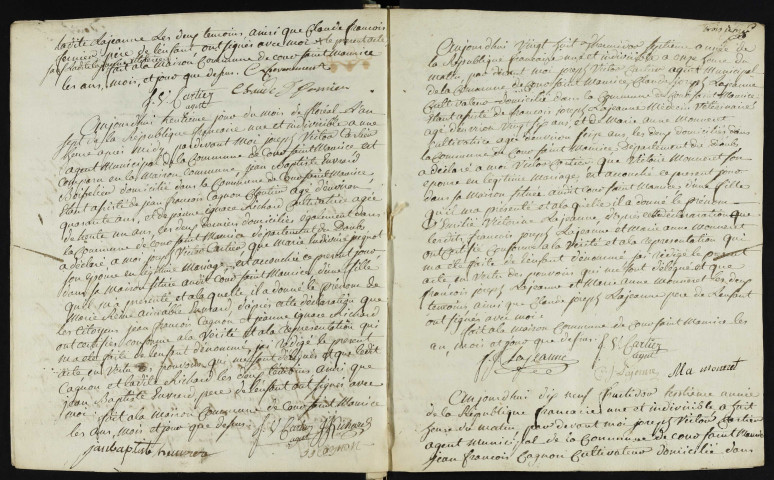 ladite Lajeanne Les deux temoins, ainsi que Claude francois
fournier père de l'enfant, ont signés avec moi le present acte
fait ala Maison Commune de Cour saint Maurice
les an, mois, et jour que dessus
J. V. Cartier
agent
Aujourdhui trentieme jour du mois de floreal L'an
sept de la Republique francaise une et indivisible a une
heure apres Midy, pardevant Moi joseph Victor Cartier
agent Municipal de la Commune de Cour saint Maurice est
Comparu en la Maison Commune, jean Baptiste
domicilié dans la Commune de Cour saint Maurice,
étant assisté de jean francois Cagnon agé d'environ
quarante ans, et de jeanne ignace Richard Cultivatrice agée
de trente un ans, les deux derniers domiciliés également dans
la Commune de Cour saint Maurice Departement du Doubs
a déclaré, a moi joseph Victor Cartier que Marie
son épouse en legitime Mariage, est accouchée ce present jour
dans sa Maison située audit Cour saint Maurice, d'une fille
qu'il m'a presenté et a laquelle il a donné le prenom de
Marie d'apres cette déclaration que
les Citoyens jean francois Cagnon et jeanne ignace Richard
ont certifiés conforme a la Vérité et a la representation qui
m'a eté faite de l'enfant denommé, j'ai rédigé le present
acte en Vertu des pouvoirs qui me sont délégués et que ledit
Cagnon et ladite Richard les deux temoins ainsi que
jean Baptiste père de l'enfant ont signés avec
moi fait ala maison Commune de Cour saint Maurice
les an, mois et jour que dessus J. V. Cartier Richard
agent
jeanbaptiste
Aujourdhui Vingt huit septieme année de
la Republique francaise une et indivisible a onze heure du
matin, par devant moi joseph Victor Cartier agent Municipal
de la Commune de Cour saint Maurice, Claude joseph Lajeanne
Cultivateur domicilié dans la Commune de Cour saint Maurice
étant assisté de francois joseph Lajeanne Medecin Veterinaire
agé d'environ Vingt ans, et de Marie Anne Monnert
Cultivatrice agée d'environ ans, les deux domiciliés dans
la Commune de Cour saint Maurice, Departement du doubs
a déclaré a moi Victor Cartier que Monnert son
épouse en legitime Mariage, est accouchée ce present jour
dans sa Maison située audit Cour saint Maurice d'une fille
qu'il m'a presenté et a laquelle il a donné le prenom
Lajeanne, d'apres cette déclaration que
lesdits francois joseph Lajeanne et Marie anne Monnert
ont certifié conforme a la Vérité et a la representation qui
m'a eté faite de l'enfant denommé j'ai rédigé le present
acte, en Vertu des pouvoirs qui me sont délégués et que
francois joseph Lajeanne et Marie Anne Monnert les deux
temoins ainsi que Claude joseph Lajeanne père de l'enfant
ont signés avec moi
fait ala Maison Commune de Cour saint Maurice les
an, mois et jour que dessus J. V. Cartier
agent
f. J. Lajeanne C J Lajeanne M a monnert
Aujourdhui dix neuf fructidor septieme année
de la Republique francaise une et indivisible a
heure du matin, par devant moi joseph Victor Cartier
agent Municipal de la Commune de Cour saint Maurice
jean francois Cagnon Cultivateur domicilié dans